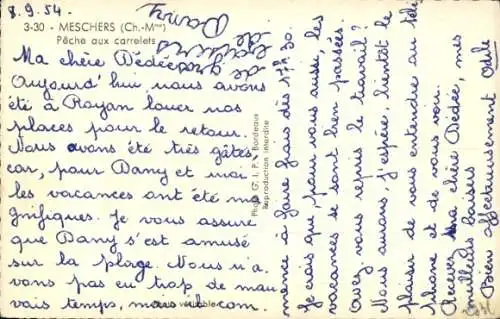 8.9.54
3-30 - MESCHERS (Ch.-Mme)
Pêche aux carrelets
Ma chère Dédée
Aujourd'hui, nous avons
été à Royan louer nos
places pour le retour.
Nous avons été très gâtés
car, pour Dany et moi
les vacances ont été ma
gnifiques. Je vous assure
que Dany s'est amusé
sur la plage. Nous n'a
vons pas eu trop de mau
vais temps, mais il com.
mence à faire frais dès 17h30.
Je crois que, pour vous aussi, les
vacances se sont bien passées.
Avez vous repris le travail?
Nous aurons, j'espère, bientôt le
plaisir de vous entendre au télé
phone et de vous voir.
Recevez, ma chère Dédée, mes
meilleurs baisers
Bien affectueusement Odile
de gros
baisers
de
Dany
Photo G. I. P. Bordeaux
Reproduction interdite